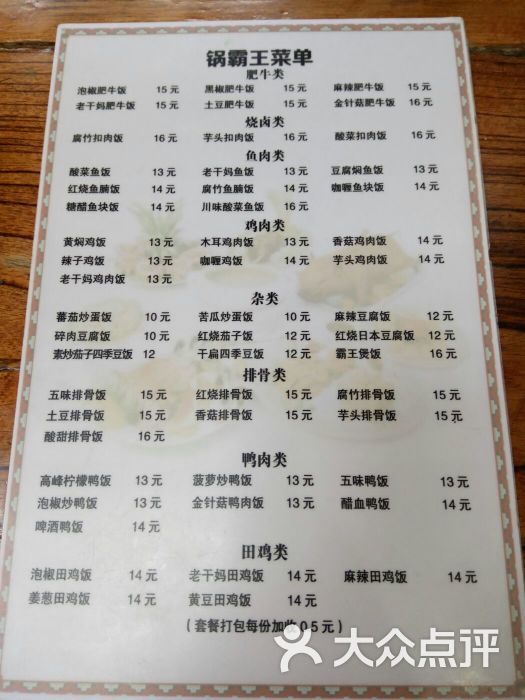 锅霸王菜单
肥牛类
泡椒肥牛饭 15 元 黑椒肥牛饭 15 元 麻辣肥牛饭 15 元
老干妈肥牛饭 15 元 土豆肥牛饭 15 元 金针菇肥牛饭 16 元
烧卤类
腐竹扣肉饭 16 元 芋头扣肉饭 16 元 酸菜扣肉饭 16 元
鱼肉类
酸菜鱼饭 13 元 老干妈鱼饭 13 元 豆腐焖鱼饭 13 元
红烧鱼腩饭 14 元 腐竹鱼腩饭 14 元 咖喱鱼块饭 14 元
糖醋鱼块饭 14 元 川味酸菜鱼饭 16 元
鸡肉类
黄焖鸡饭 13 元 木耳鸡肉饭 13 元 香菇鸡肉饭 14 元
辣子鸡饭 13 元 咖喱鸡饭 14 元 芋头鸡肉饭 14 元
老干妈鸡肉饭 13 元
杂类
蕃茄炒蛋饭 10 元 苦瓜炒蛋饭 10 元 麻辣豆腐饭 12 元
碎肉豆腐饭 10 元 红烧茄子饭 12 元 红烧日本豆腐饭 12 元
素炒茄子四季豆饭 12 干扁四季豆饭 12 元 霸王煲饭 16 元
排骨类
五味排骨饭 15 元 红烧排骨饭 15 元 腐竹排骨饭 15 元
土豆排骨饭 15 元 香菇排骨饭 15 元 芋头排骨饭 15 元
酸甜排骨饭 16 元
鸭肉类
高峰柠檬鸭饭 13 元 菠萝炒鸭饭 13 元 五味鸭饭 13 元
泡椒炒鸭饭 13 元 金针菇鸭肉饭 13 元 醋血鸭饭 14 元
啤酒鸭饭 14 元
田鸡类
泡椒田鸡饭 14 元 老干妈田鸡饭 14 元 麻辣田鸡饭 14 元
姜葱田鸡饭 14 元 黄豆田鸡饭 14 元
（套餐打包每份加收0 5 元）
大众点评